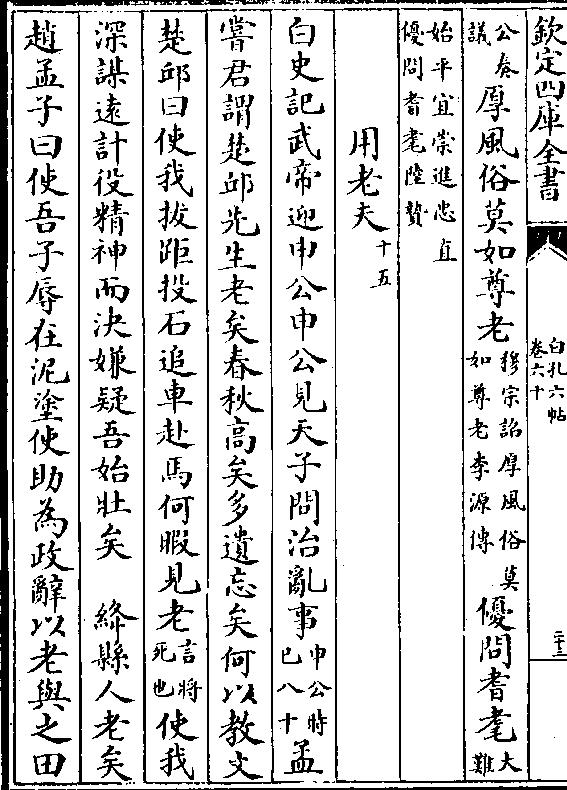 欽定四庫全書
白孔六帖
卷六十
二十三
公奏議厚風俗莫如尊老穆宗詔厚風俗莫如尊老李源傳優問耆耄大難
始平宜崇進忠直優問耆耄陸贄
用老夫十五
白史記武帝迎申公申公見天子問治亂事申公時已八十孟
嘗君謂楚邱先生老矣春秋高矣多遺忘矣何以教文
楚邱曰使我拔距投石追車赴馬何暇見老言將死也使我
深謀遠計役精神而決嫌疑吾始壯矣　絳縣人老矣
趙孟子曰使吾子辱在泥塗使助為政辭以老與之田